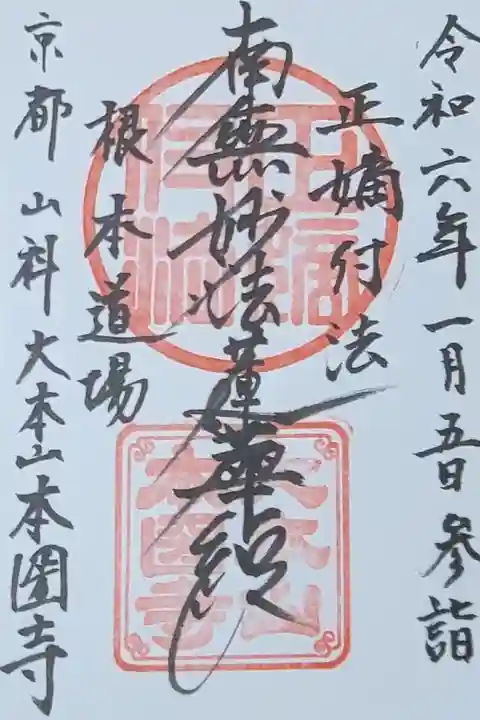 令和六年一月五日参詣
正嫡付法
南無妙法蓮華経
根本道場
京都 山科大本山本圀寺
大本山
本圀寺
正嫡
付法